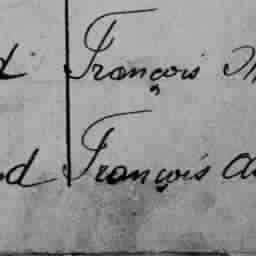 d François
d François